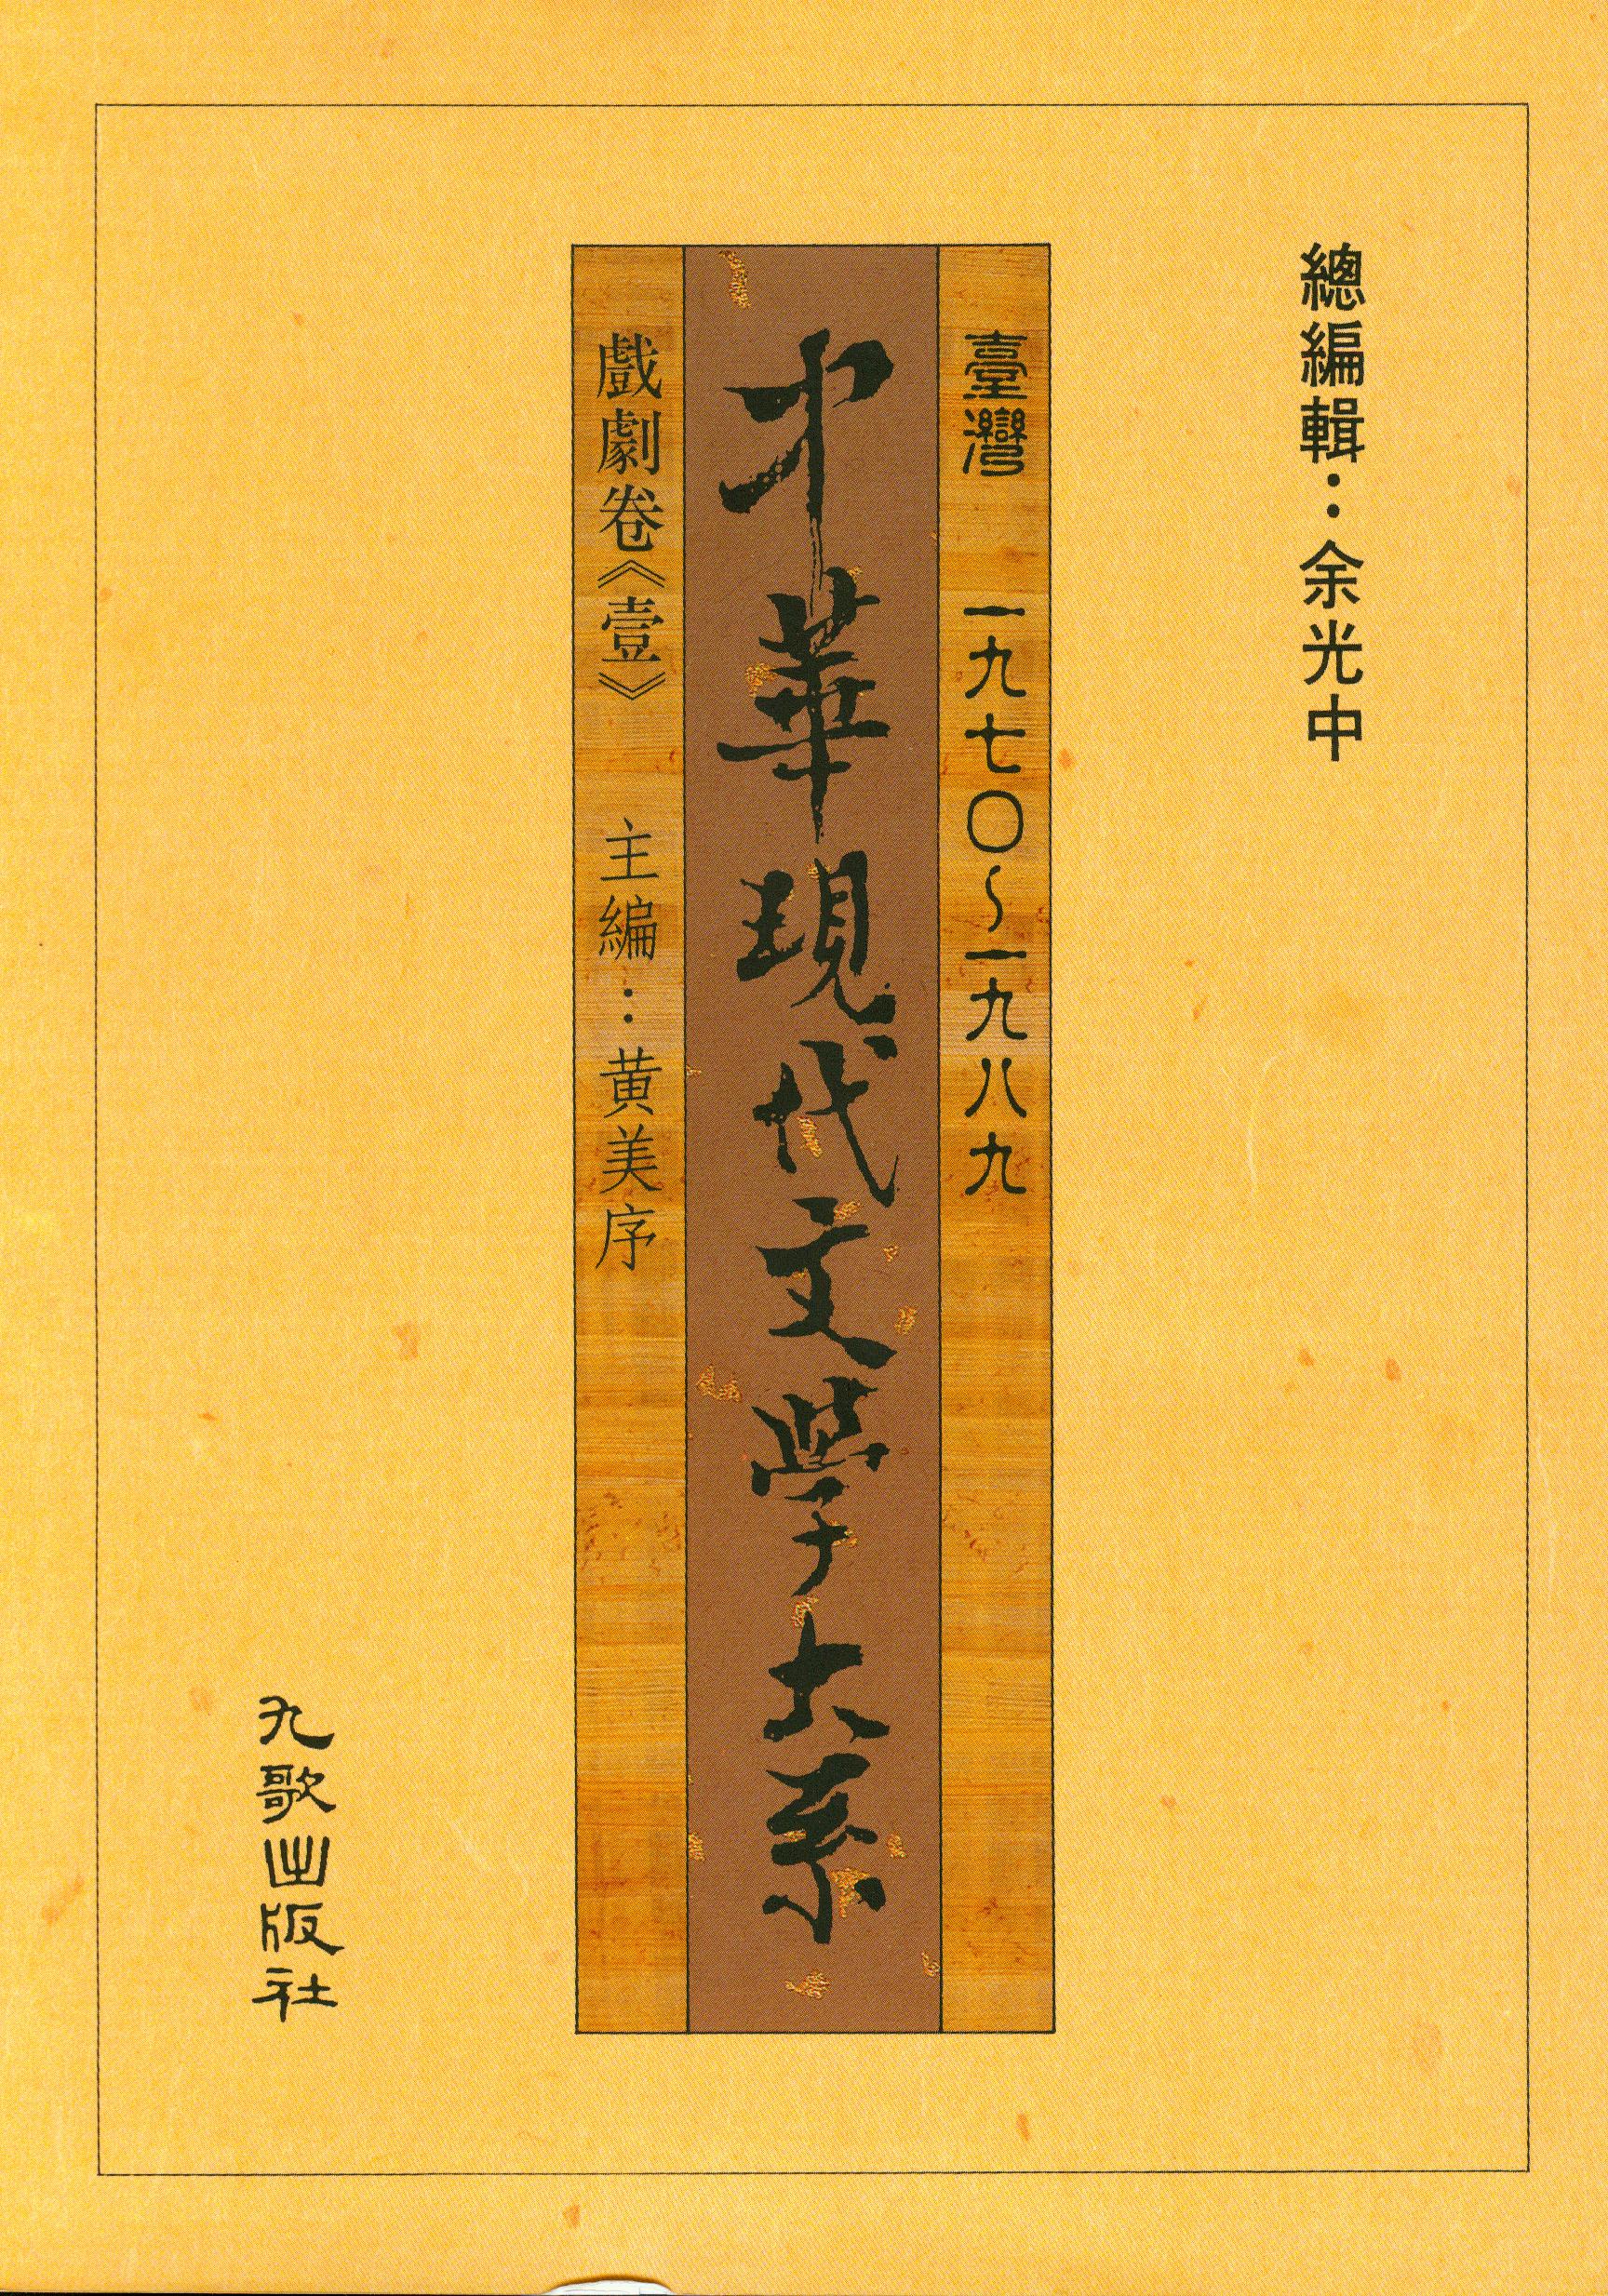 總編輯：余光中
臺灣 一九七〇～一九八九
中華現代文學大系
戲劇卷《壹》 主編：黄美序
九歌出版社